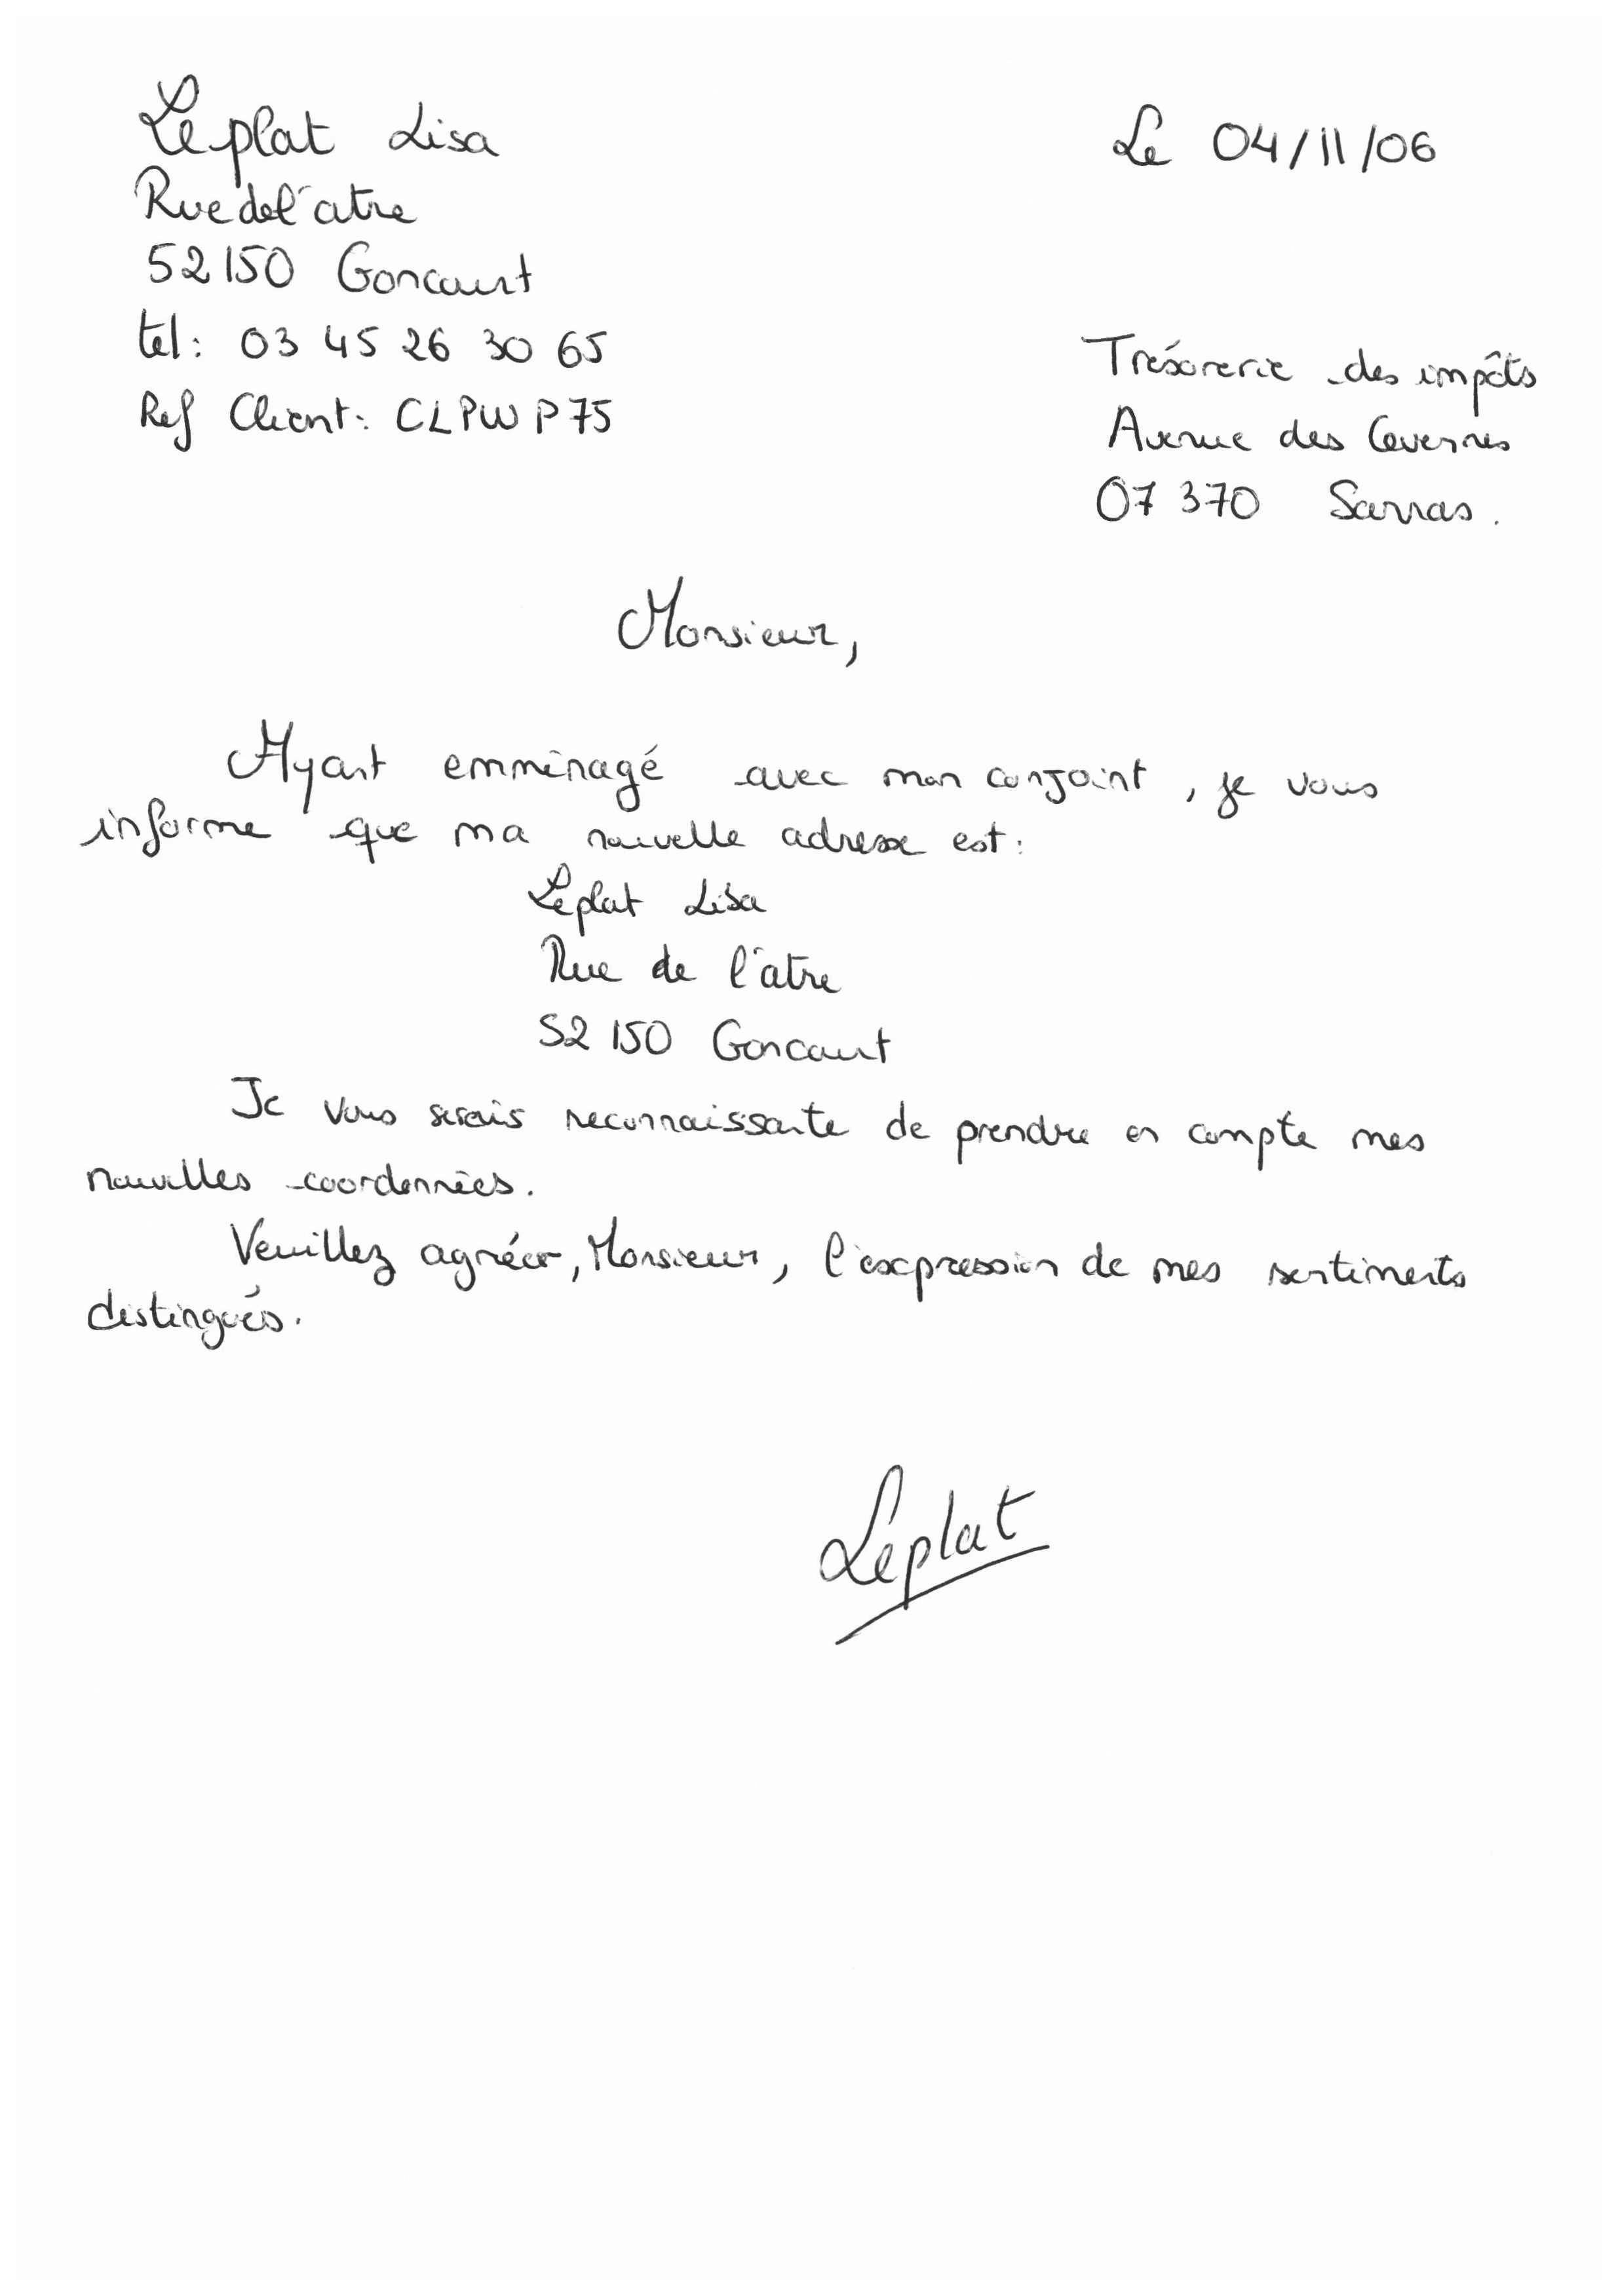 Leplat Lisa
Le 04/11/06
Rue de l'atre
52150 Goncourt
tel: 03 45 26 30 65
Ref Client: CLPWP75
Trésorerie des impôts
Avenue des Cevennes
07 370 Sarras.
Monsieur,
Ayant emménagé avec mon conjoint, je vous
informe que ma nouvelle adresse est:
Leplat Lisa
Rue de l'atre
52 150 Goncourt
Je vous serais reconnaissante de prendre en compte mes
nouvelles coordonnées.
Veuillez agréer, Monsieur, l'expression de mes sentiments
distingués.
Leplat